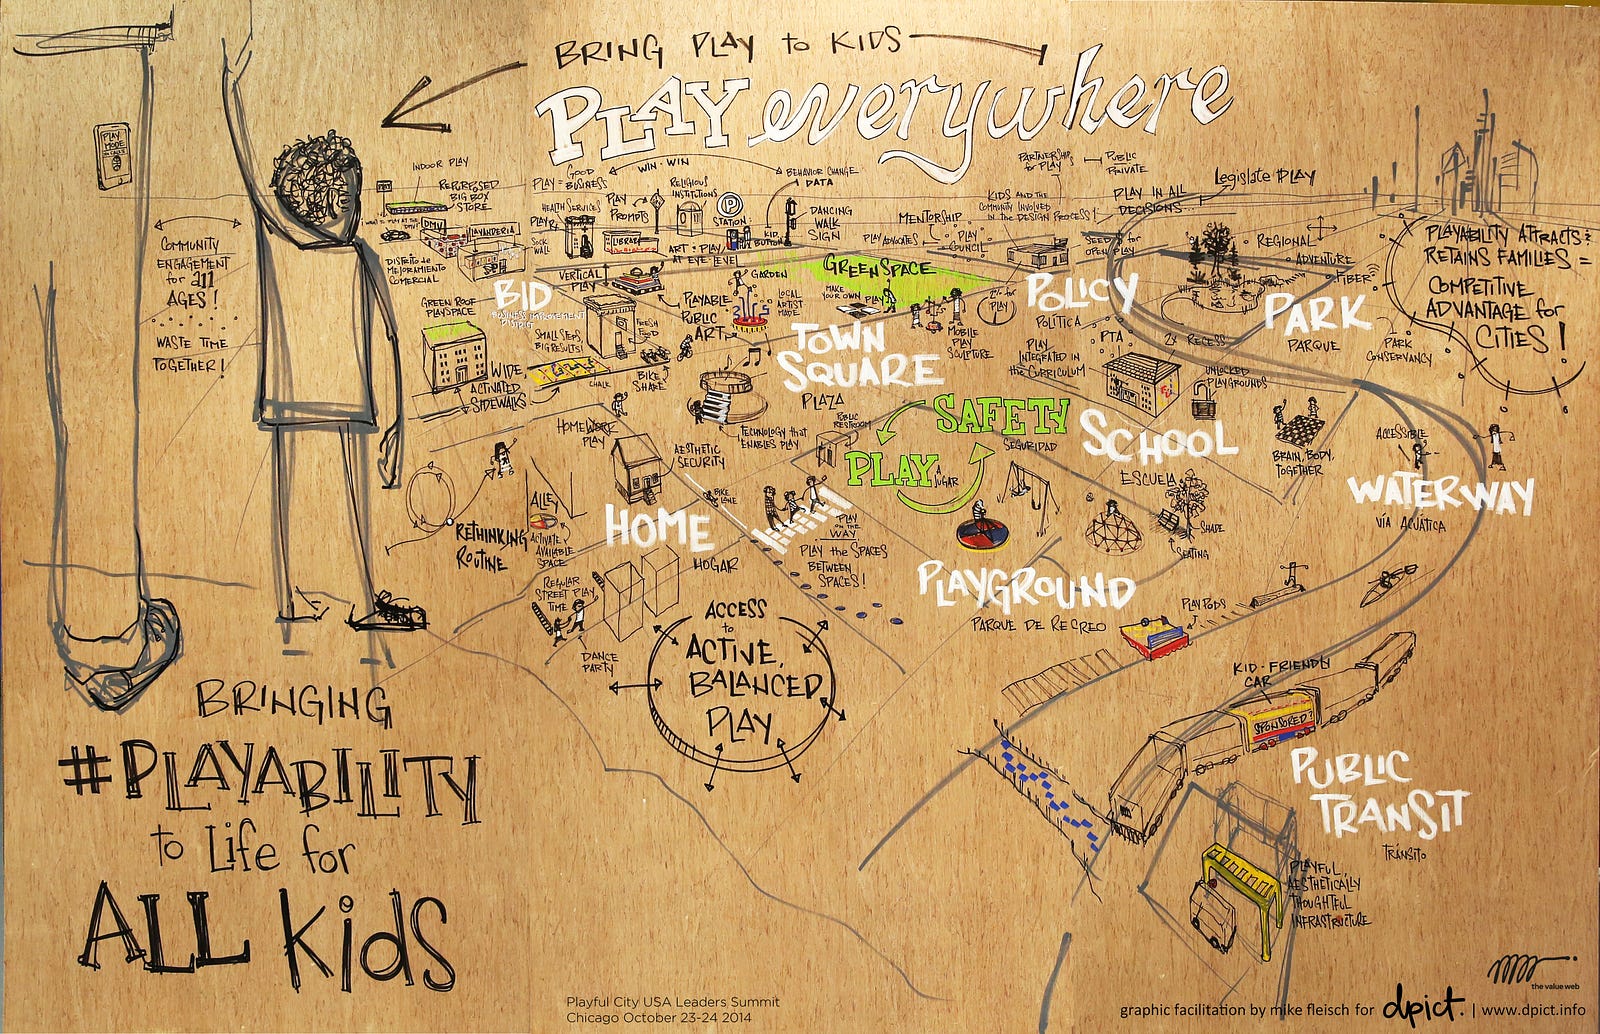 BRING PLAY to KIDS
PLAY everywhere
PLAY
MODE
COMMUNITY
ENGAGEMENT
for all
AGES!
WASTE TIME
TOGETHER!
INDOOR PLAY
REPURPOSED
BIG BOX
STORE
DMV
LAVANDERIA
DISTRITO de
MEJORAMIENTO
COMERCIAL
GOOD
PLAY = BUSINESS
WIN-WIN
HEALTH SERVICES
PLAY
PROMPTS
RELIGIOUS
INSTITUTIONS
P
STATION
BEHAVIOR CHANGE
DATA
DANCING
WALK
SIGN
KID
BUTTON
SOCK
WALL
LIBRARY
ART : PLAY
AT EYE LEVEL
VERTICAL
PLAY
BID
BUSINESS IMPROVEMENT
DISTRICT
GREEN ROOF
PLAYSPACE
SMALL STEPS,
BIG RESULTS!
FRESH
FOOD
WIDE,
ACTIVATED
SIDEWALKS
CHALK
BIKE
SHARE
PLAYABLE
PUBLIC
ART
GARDEN
LOCAL
ARTIST
MADE
GREEN SPACE
MAKE
YOUR OWN PLAY
MOBILE
PLAY
SCULPTURE
TOWN
SQUARE
PLAZA
TECHNOLOGY that
ENABLES PLAY
PUBLIC
RESTROOM
PARTNERSHIP
for PLAY
PUBLIC
PRIVATE
KIDS AND the
COMMUNITY INVOLVED
IN the DESIGN PROCESS!
PLAY IN ALL
DECISIONS
Legislate PLAY
MENTORSHIP
PLAY ADVOCATES
PLAY
COUNCIL
SEED $ for
OPEN PLAY
2% for
PLAY
POLICY
POLÍTICA
REGIONAL
ADVENTURE
FIBER
PARK
PARQUE
PARK
CONSERVANCY
PLAYABILITY ATTRACTS &
RETAINS FAMILIES =
COMPETITIVE
ADVANTAGE for
CITIES!
PLAY
INTEGRATED IN
the CURRICULUM
PTA
2x RECESS
UNLOCKED
PLAYGROUNDS
SAFETY
SEGURIDAD
PLAY
JUGAR
SCHOOL
ESCUELA
BRAIN, BODY,
TOGETHER
ACCESSIBLE
WATERWAY
VÍA ACUÁTICA
SHADE
SEATING
HOMEWORK
PLAY
AESTHETIC
SECURITY
BIKE
LANE
HOME
HOGAR
ALLEY
ACTIVATE
AVAILABLE
SPACE
RETHINKING
ROUTINE
REGULAR
STREET PLAY
TIME
DANCE
PARTY
PLAY
ON the
WAY
PLAY the SPACES
BETWEEN
SPACES!
PLAYGROUND
PARQUE DE RECREO
PLAY PODS
ACCESS
to
ACTIVE,
BALANCED
PLAY
KID-FRIENDLY
CAR
SPONSORED?
PUBLIC
TRANSIT
TRÁNSITO
PLAYFUL,
AESTHETICALLY
THOUGHTFUL
INFRASTRUCTURE
BRINGING
#PLAYABILITY
to Life for
ALL Kids
Playful City USA Leaders Summit
Chicago October 23-24 2014
the value web
graphic facilitation by mike fleisch for dpict. | www.dpict.info